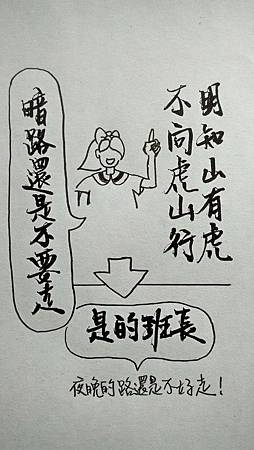 明知山有虎
不向虎山行
暗路還是不要走
是的班長
夜晚的路還是不好走！